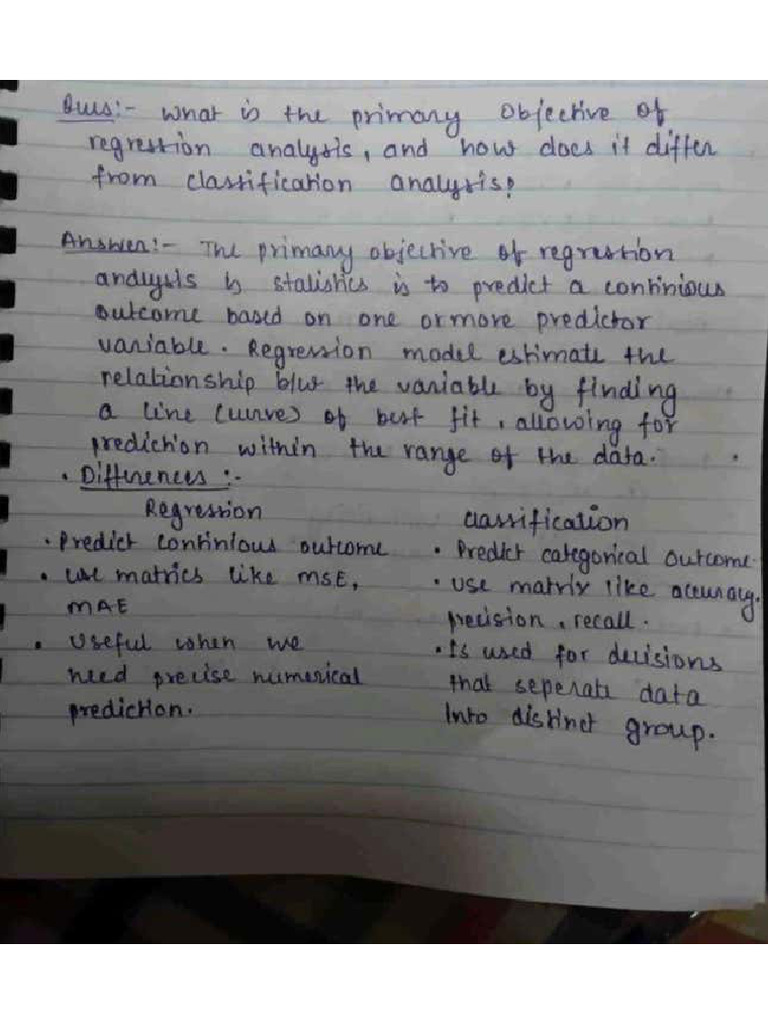 Ques:- What is the primary objective of
regression analysis, and how does it differ
from classification analysis?
Answer:- The primary objective of regression
analysis is statistics is to predict a continious
outcome based on one or more predictor
variable. Regression model estimate the
relationship b/w the variable by finding
a line (curve) of best fit, allowing for
prediction within the range of the data.
• Differences :-
Regression
Classification
• Predict continious outcome
• Predict categorical outcome.
• use matrics like MSE,
MAE
• Use matrix like accuracy,
precision, recall.
• Useful when we
need precise numerical
prediction.
• Is used for decisions
that seperate data
Into distinct group.